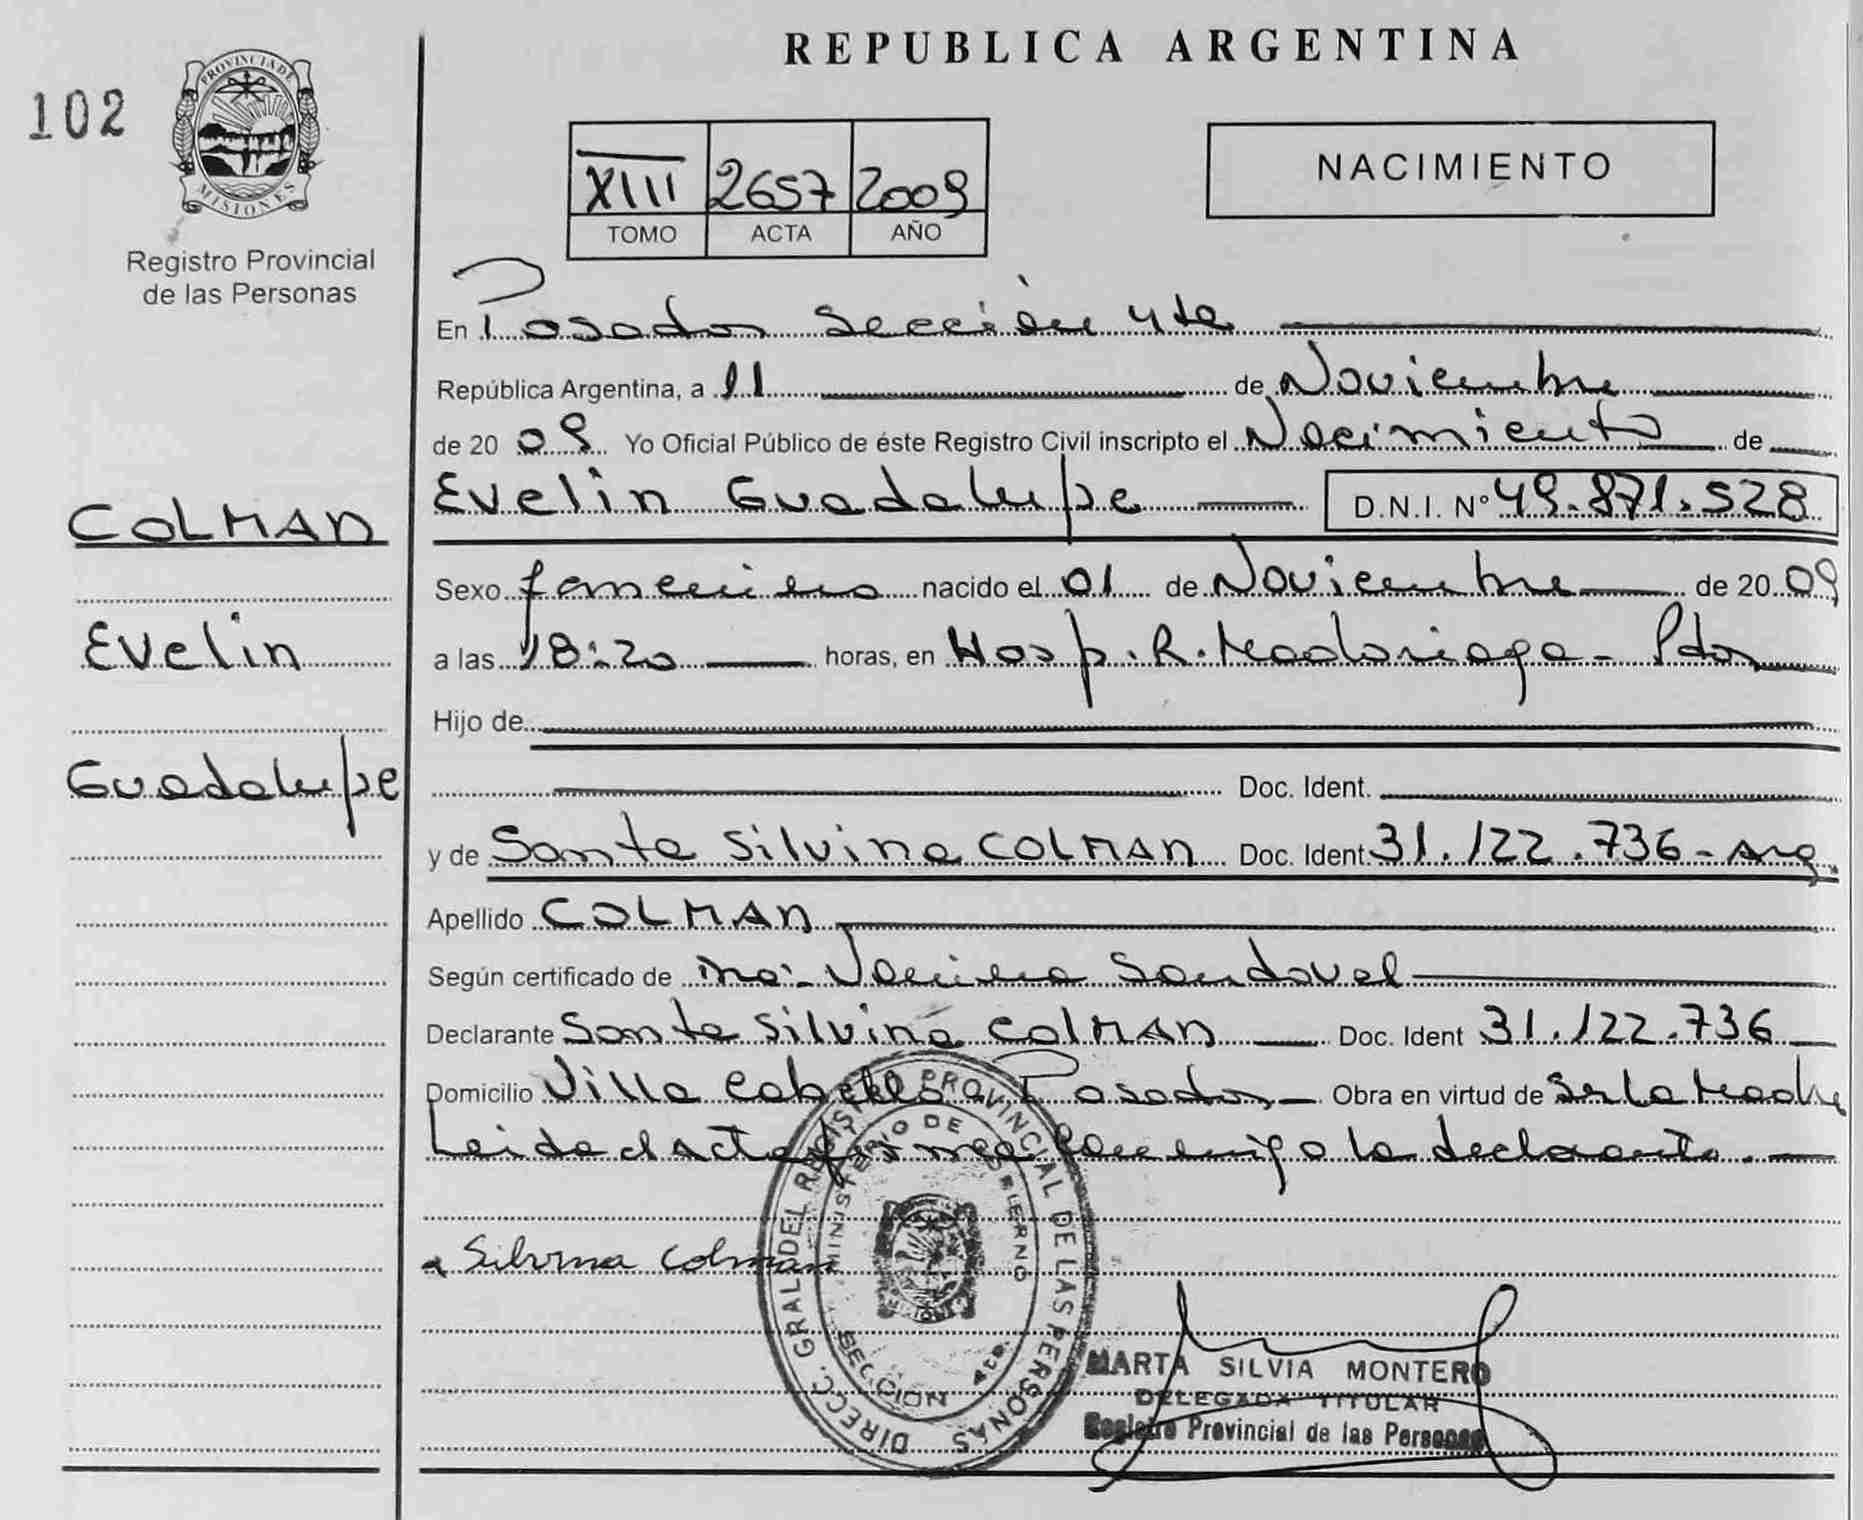 REPUBLICA ARGENTINA
102
PROVINCIA DE
MISIONES
Registro Provincial
de las Personas
XIII 2657 2009
TOMO ACTA AÑO
NACIMIENTO
En Posadas Sección 4ta
República Argentina, a 11 de Noviembre
de 2009 Yo Oficial Público de éste Registro Civil inscripto el Nacimiento de
Evelin Guadalupe D.N.I. Nº 49.871.528
COLMAN
Evelin
Guadalupe
Sexo femenino nacido el 01 de Noviembre de 2009
a las 18:20 horas, en Hosp. R. Madariaga - Pdas
Hijo de
Doc. Ident.
y de Santa Silvina COLMAN Doc. Ident. 31.122.736 - Arg.
Apellido COLMAN
Según certificado de Sandoval
Declarante Santa Silvina COLMAN Doc. Ident 31.122.736
Domicilio Villa Cabello Posadas Obra en virtud de Ser la Madre
Leida el acta firma conmigo la declarante.
Silvina Colman
DIRECC. GRAL DEL REGISTRO PROVINCIAL DE LAS PERSONAS
MINISTERIO DE GOBIERNO
MISIONES
SECCION 4ta.
MARTA SILVIA MONTERO
DELEGADA TITULAR
Registro Provincial de las Personas